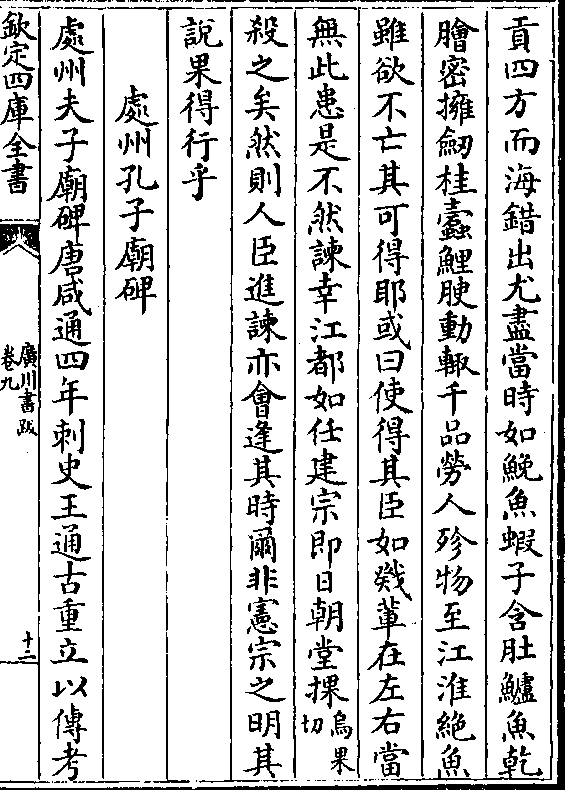 貢四方而海錯出尤盡當時如鮸魚蝦子含肚鱸魚乾
膾密擁劒桂蠧鯉腴動輙千品勞人殄物至江淮絶魚
雖欲不亡其可得耶或曰使得其臣如戣輩在左右當
無此患是不然諫幸江都如任建宗即日朝堂捰烏果切
殺之矣然則人臣進諫亦㑹逢其時爾非憲宗之明其
說果得行乎
處州孔子廟碑
處州夫子廟碑唐咸通四年刺史王通古重立以傳考
欽定四庫全書
廣川書跋
卷九
十二